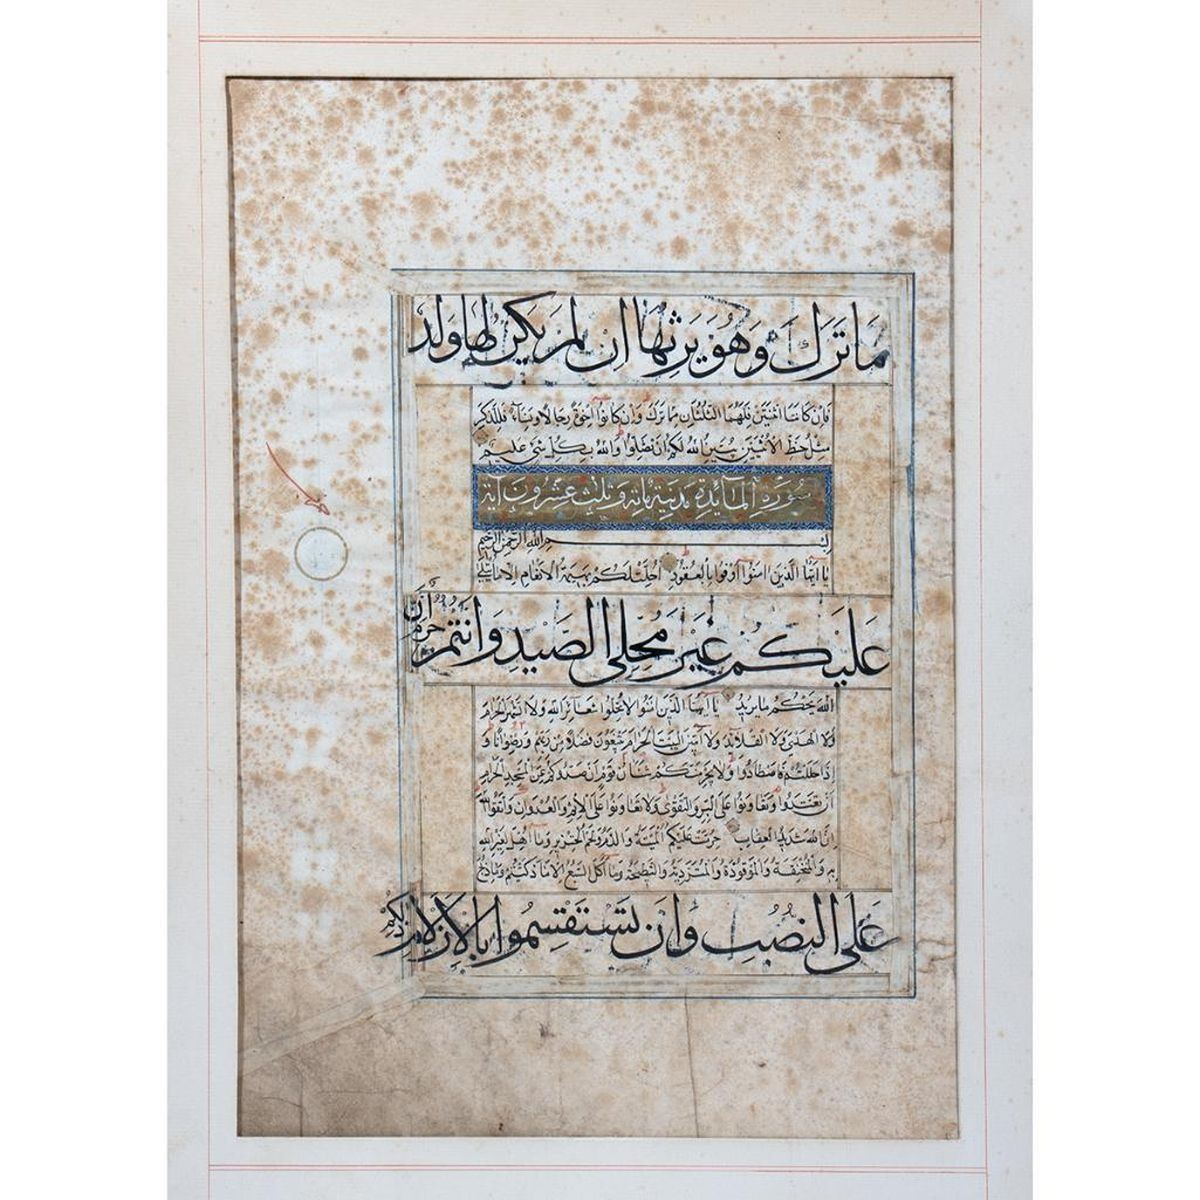 مَا تَرَكَ وَهُوَ يَرِثُهَا إِن لَمْ يَكُنْ لَهَا وَلَدٌ
فَإِن كَانَتَا اثْنَتَيْنِ فَلَهُمَا الثُّلُثَانِ مِمَّا تَرَكَ وَإِن كَانُوا إِخْوَةً رِجَالًا وَنِسَآءً فَلِلذَّكَرِ
مِثْلُ حَظِّ الْأُنْثَيَيْنِ يُبَيِّنُ اللهُ لَكُمْ أَنْ تَضِلُّوا وَاللهُ بِكُلِّ شَيْءٍ عَلِيمٌ
سُورَةِ الْمَآئِدَةِ مَدَنِيَّة مِائَة وَثَلٰثُ عِشْرُونَ آيَة
بِسْمِ اللهِ الرَّحْمٰنِ الرَّحِيمِ
يَا أَيُّهَا الَّذِينَ اٰمَنُوا أَوْفُوا بِالْعُقُودِ أُحِلَّتْ لَكُمْ بَهِيمَةُ الْأَنْعَامِ إِلَّا مَا يُتْلَىٰ
عَلَيْكُمْ غَيْرَ مُحِلِّي الصَّيْدِ وَأَنْتُمْ حُرُمٌ إِنَّ
اللهَ يَحْكُمُ مَا يُرِيدُ يَا أَيُّهَا الَّذِينَ اٰمَنُوا لَا تُحِلُّوا شَعَآئِرَ اللهِ وَلَا الشَّهْرَ الْحَرَامَ
وَلَا الْهَدْيَ وَلَا الْقَلَآئِدَ وَلَا آمِّينَ الْبَيْتَ الْحَرَامَ يَبْتَغُونَ فَضْلًا مِنْ رَبِّهِمْ وَرِضْوَانًا وَ
إِذَا حَلَلْتُمْ فَاصْطَادُوا وَلَا يَجْرِمَنَّكُمْ شَنَاٰنُ قَوْمٍ أَنْ صَدُّوكُمْ عَنِ الْمَسْجِدِ الْحَرَامِ
أَنْ تَعْتَدُوا وَتَعَاوَنُوا عَلَى الْبِرِّ وَالتَّقْوَىٰ وَلَا تَعَاوَنُوا عَلَى الْإِثْمِ وَالْعُدْوَانِ وَاتَّقُوا اللهَ
إِنَّ اللهَ شَدِيدُ الْعِقَابِ حُرِّمَتْ عَلَيْكُمُ الْمَيْتَةُ وَالدَّمُ وَلَحْمُ الْخِنْزِيرِ وَمَا أُهِلَّ لِغَيْرِ اللهِ
بِهِ وَالْمُنْخَنِقَةُ وَالْمَوْقُوذَةُ وَالْمُتَرَدِّيَةُ وَالنَّطِيحَةُ وَمَا أَكَلَ السَّبُعُ إِلَّا مَا ذَكَّيْتُمْ وَمَا ذُبِحَ
عَلَى النُّصُبِ وَأَنْ تَسْتَقْسِمُوا بِالْأَزْلَامِ ذٰلِكُمْ